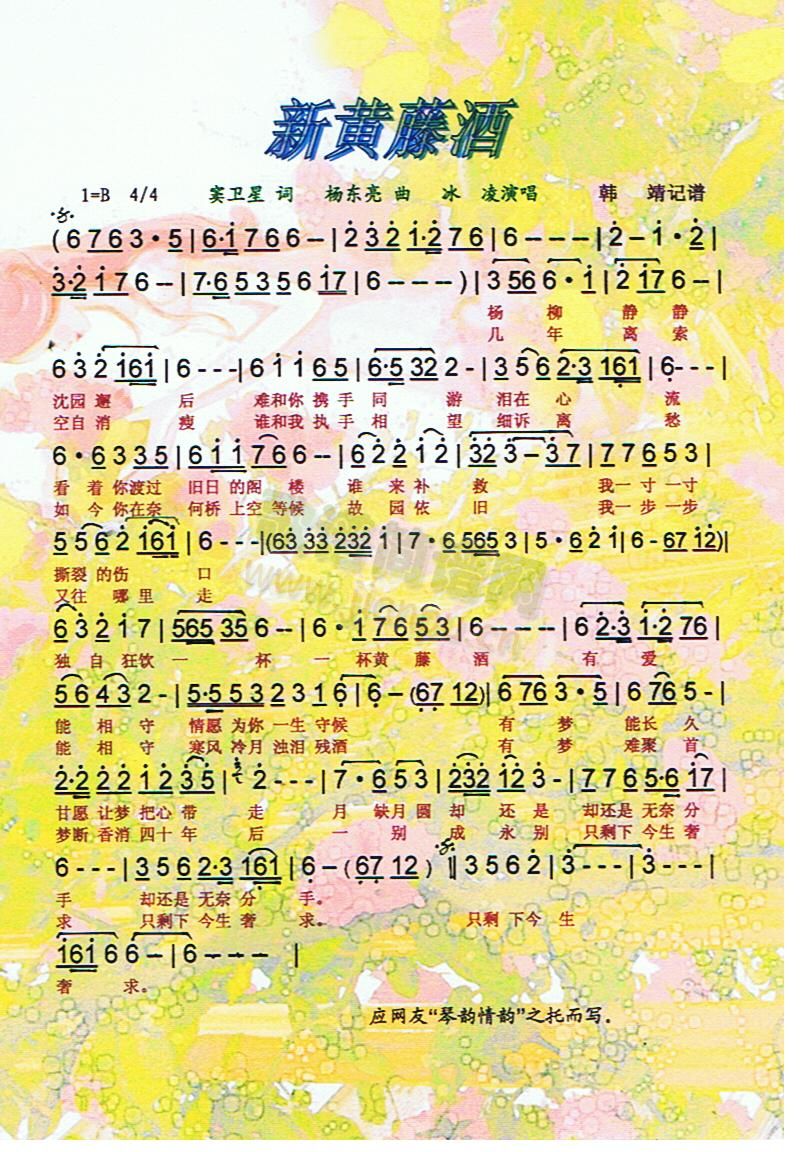 新黄藤酒
1=B 4/4 窦卫星 词 杨东亮 曲 冰 凌演唱 韩 靖记谱
( 6 7 6 3 · 5 | 6·1 7 6 6 -- | 2 3 2 1·2 7 6 | 6 --- | 2 - 1 · 2 |
3·2 1 7 6 -- | 7·6 5 3 5 6 17 | 6 --- ) | 3 56 6 · 1 | 2 17 6 -- |
杨 柳 静 静
几 年 离 索
6 3 2 161 | 6 --- | 6 1 1 6 5 | 6·5 32 2 - | 3 5 6 2·3 161 | 6---
沈园 邂 后 难和你 携 手 同 游 泪在 心 流
空自 消 瘦 谁和我 执 手 相 望 细诉 离 愁
6 · 6 3 3 5 | 6 1 1 7 6 6 -- | 6 2 2 1 2 | 32 3 - 3 7 | 7 7 6 5 3 |
看 着 你渡过 旧日 的阁 楼 谁 来 补 救 我一 寸 一寸
如 今 你在奈 何桥 上空 等候 故 园 依 旧 我一 步 一步
5 5 6 2 161 | 6 --- |(63 33 232 1 | 7 · 6 565 3 | 5 · 6 2 1 | 6 - 67 12)|
撕裂 的伤 口
又往 哪 里 走
6 3 2 1 7 | 565 35 6 -- | 6 · 1 7 6 5 3 | 6 --- | 6 2·3 1·2 76 |
独 自 狂饮 一 杯 一 杯黄 藤 酒 有 爱
5 6 4 3 2 - | 5·5 5 3 2 3 1 6 | 6 - (67 12)| 6 76 3 · 5 | 6 76 5 - |
能 相 守 情愿 为你 一生 守候 有 梦 能长 久
能 相 守 寒风 冷月 浊泪 残酒 有 梦 难聚 首
2·2 2 2 1 2 3 5 | 2 --- | 7 · 6 5 3 | 232 12 3 - | 7 7 6 5·6 17 |
甘愿 让梦 把心 带 走 月 缺月 圆 却 还 是 却还 是 无奈 分
梦断 香消 四十 年 后 一 别 成 永 别 只剩 下 今生 奢
6 --- | 3 5 6 2·3 161 | 6 - ( 67 12 ) ‖ 3 5 6 2 | 3 --- | 3 --- |
手 却还 是 无奈 分 手。
求 只剩 下 今生 奢 求。 只剩 下今 生
161 6 6 -- | 6 -- - |
奢 求。
应网友“琴韵情韵”之托而写。